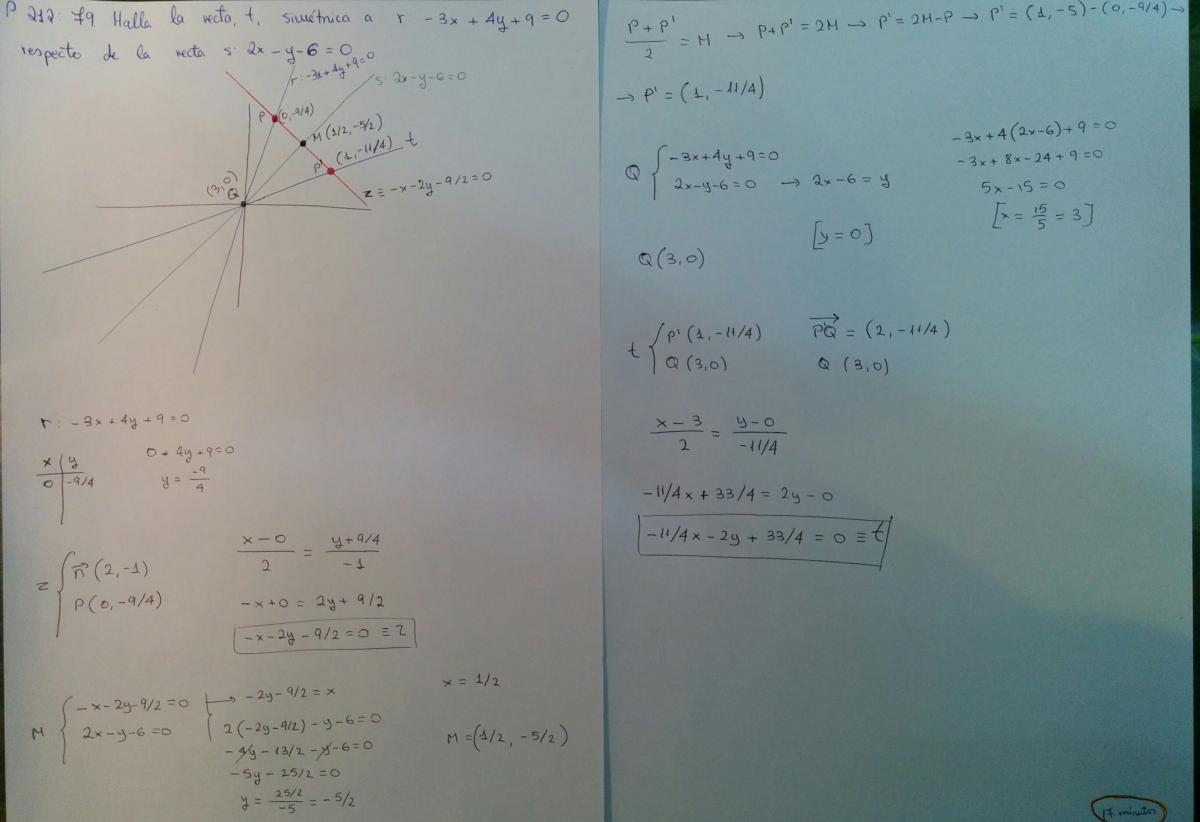 P 212: 79 Halla la recta, t, simétrica a r: -3x + 4y + 9 = 0
respecto de la recta s: 2x - y - 6 = 0
r: -3x + 4y + 9 = 0
s: 2x - y - 6 = 0
P (0, -9/4)
M (1/2, -5/2)
P' (1, -11/4)
t
(3, 0)
Q
z ≡ -x - 2y - 9/2 = 0
r: -3x + 4y + 9 = 0
x | y
0 | -9/4
0 + 4y + 9 = 0
y = -9/4
z { n⃗ (2, -1)
P (0, -9/4)
(x - 0)/2 = (y + 9/4)/-1
-x + 0 = 2y + 9/2
-x - 2y - 9/2 = 0 ≡ z
M { -x - 2y - 9/2 = 0 → -2y - 9/2 = x
2x - y - 6 = 0
2(-2y - 9/2) - y - 6 = 0
-4y - 13/2 - y - 6 = 0
-5y - 25/2 = 0
y = (25/2)/-5 = -5/2
x = 1/2
M = (1/2, -5/2)
(P + P')/2 = M → P + P' = 2M → P' = 2M - P → P' = (1, -5) - (0, -9/4) →
→ P' = (1, -11/4)
Q { -3x + 4y + 9 = 0
2x - y - 6 = 0 → 2x - 6 = y
[y = 0]
Q (3, 0)
-3x + 4(2x - 6) + 9 = 0
-3x + 8x - 24 + 9 = 0
5x - 15 = 0
[x = 15/5 = 3]
t { P' (1, -11/4)
Q (3, 0)
P'Q⃗ = (2, -11/4)
Q (3, 0)
(x - 3)/2 = (y - 0)/(-11/4)
-11/4x + 33/4 = 2y - 0
-11/4x - 2y + 33/4 = 0 ≡ t
17 minutos